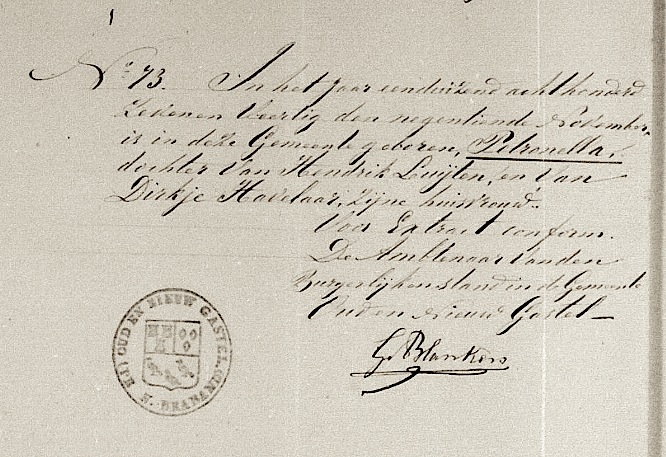 No. 73. In het jaar eenduizend acht honderd
zeven en veertig den negentiende November,
is in deze Gemeente geboren, Petronella,
dochter van Hendrik Luijten, en van
Dirkje Havelaar, zijne huisvrouw.
Voor Extract conform.
De Ambtenaar van den
Burgerlijken stand in de Gemeente
Oud en Nieuw Gastel
G Blankers
OUD EN NIEUW GASTEL N. BRABAND